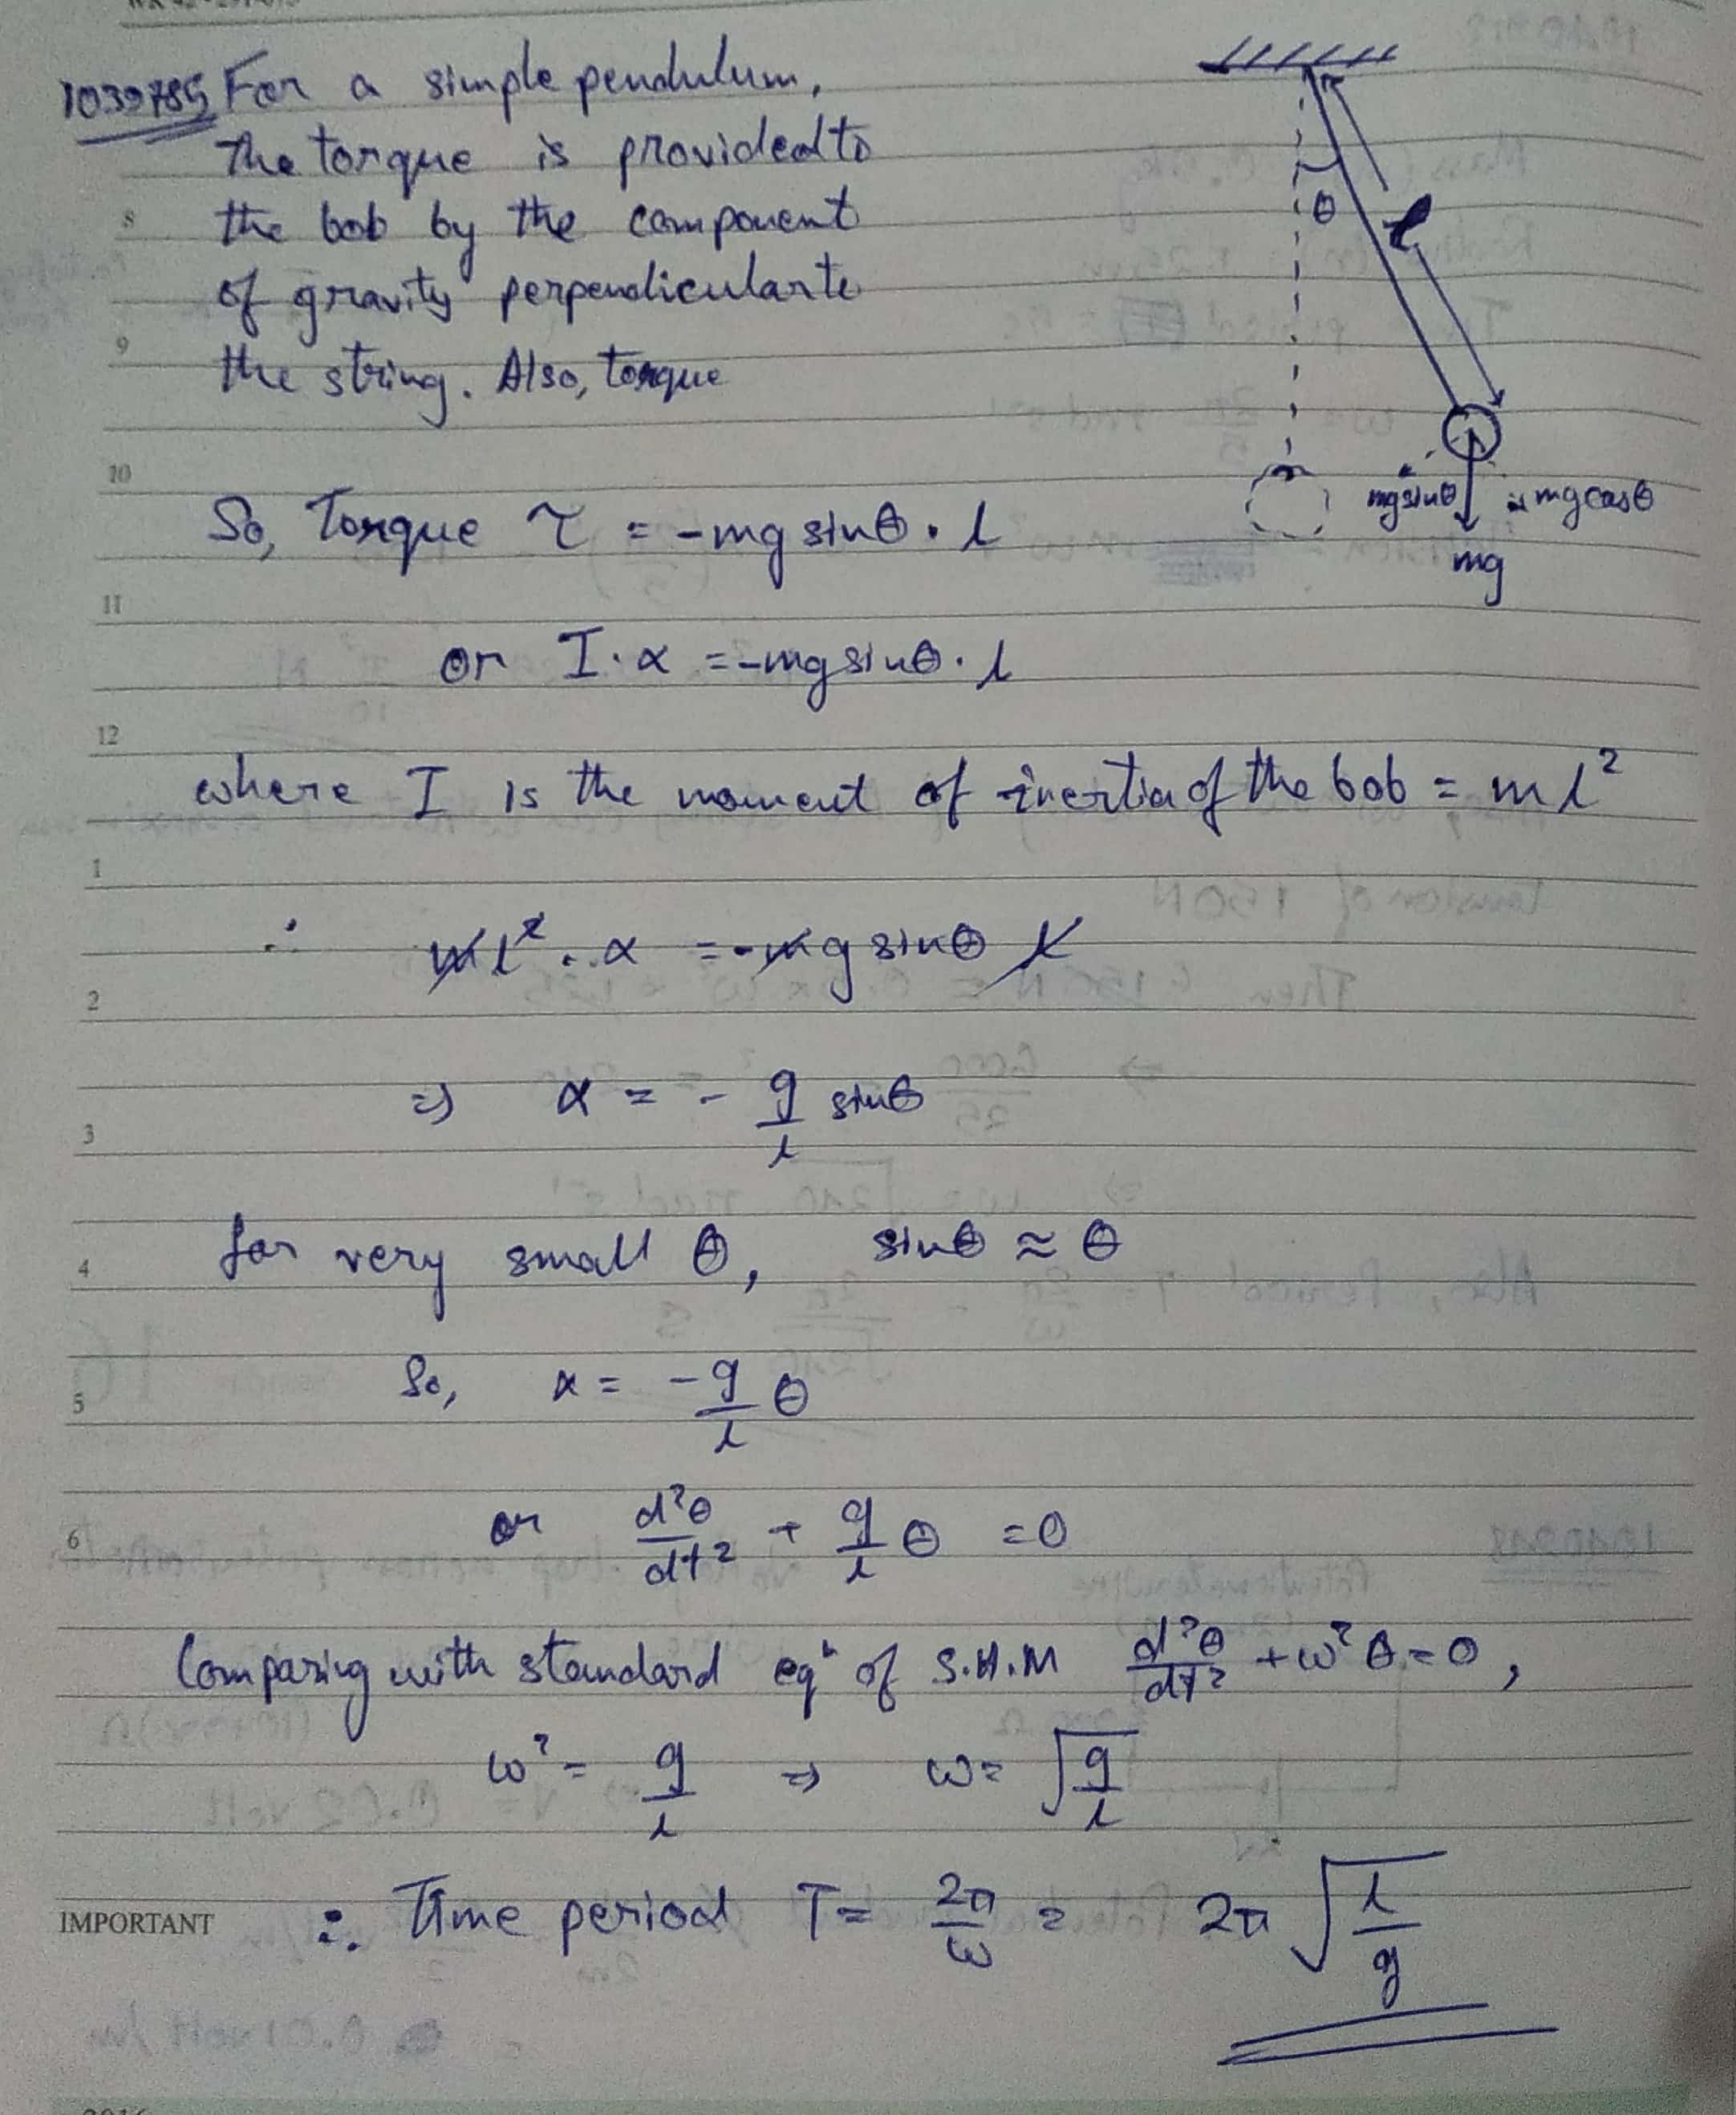 1039785 For a simple pendulum,
The torque is provided to
the bob by the component
of gravity perpendicular to
the string. Also, torque
θ
l
mg sinθ
mg cosθ
mg
So, Torque τ = -mg sinθ . l
or I . α = -mg sinθ . l
where I is the moment of inertia of the bob = ml²
∴ ml² . α = -mg sinθ l
⇒ α = - g/l sinθ
for very small θ, sinθ ≈ θ
So, α = -g/l θ
or d²θ/dt² + g/l θ = 0
Comparing with standard eqⁿ of S.H.M d²θ/dt² + ω²θ = 0,
ω² = g/l ⇒ ω = √(g/l)
∴ Time period T = 2π/ω = 2π √(l/g)
8
9
10
11
12
1
2
3
4
5
6
IMPORTANT